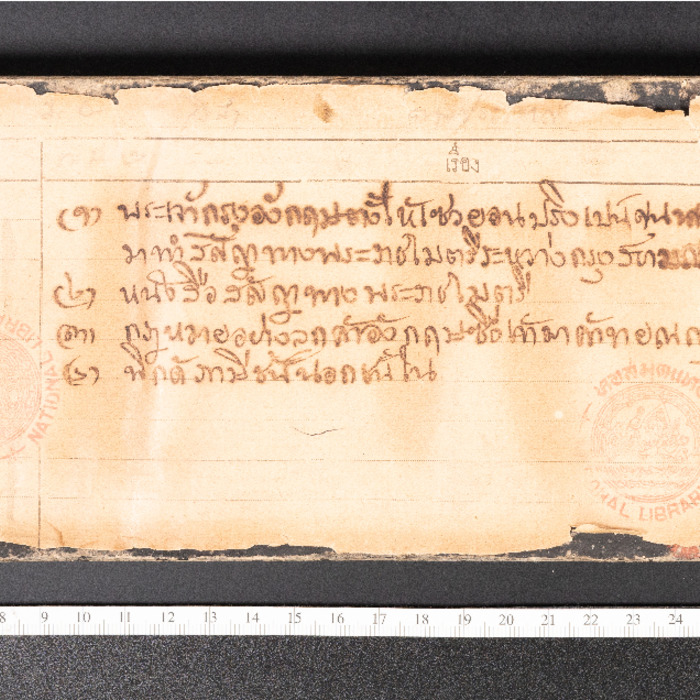 เรื่อง
(๑) พระเจ้ากรุงอังกฤษตั้งให้เซวยอนบ้ริงเปน
มาทำสัญาทางพระราชไมตรีระหว่างกรุง
(๒) หนังสือสัญาทางพระราชไมตรี
(๓) กฎหมายอย่างลูกค้าอังกฤษซื้อ
(๔) พิกัดภาษีชั้นนอกชั้นใน
NATIONAL LIBR
หอสมุดแห่ง
ONAL LIBRAR
8 9 10 11 12 13 14 15 16 17 18 19 20 21 22 23 24